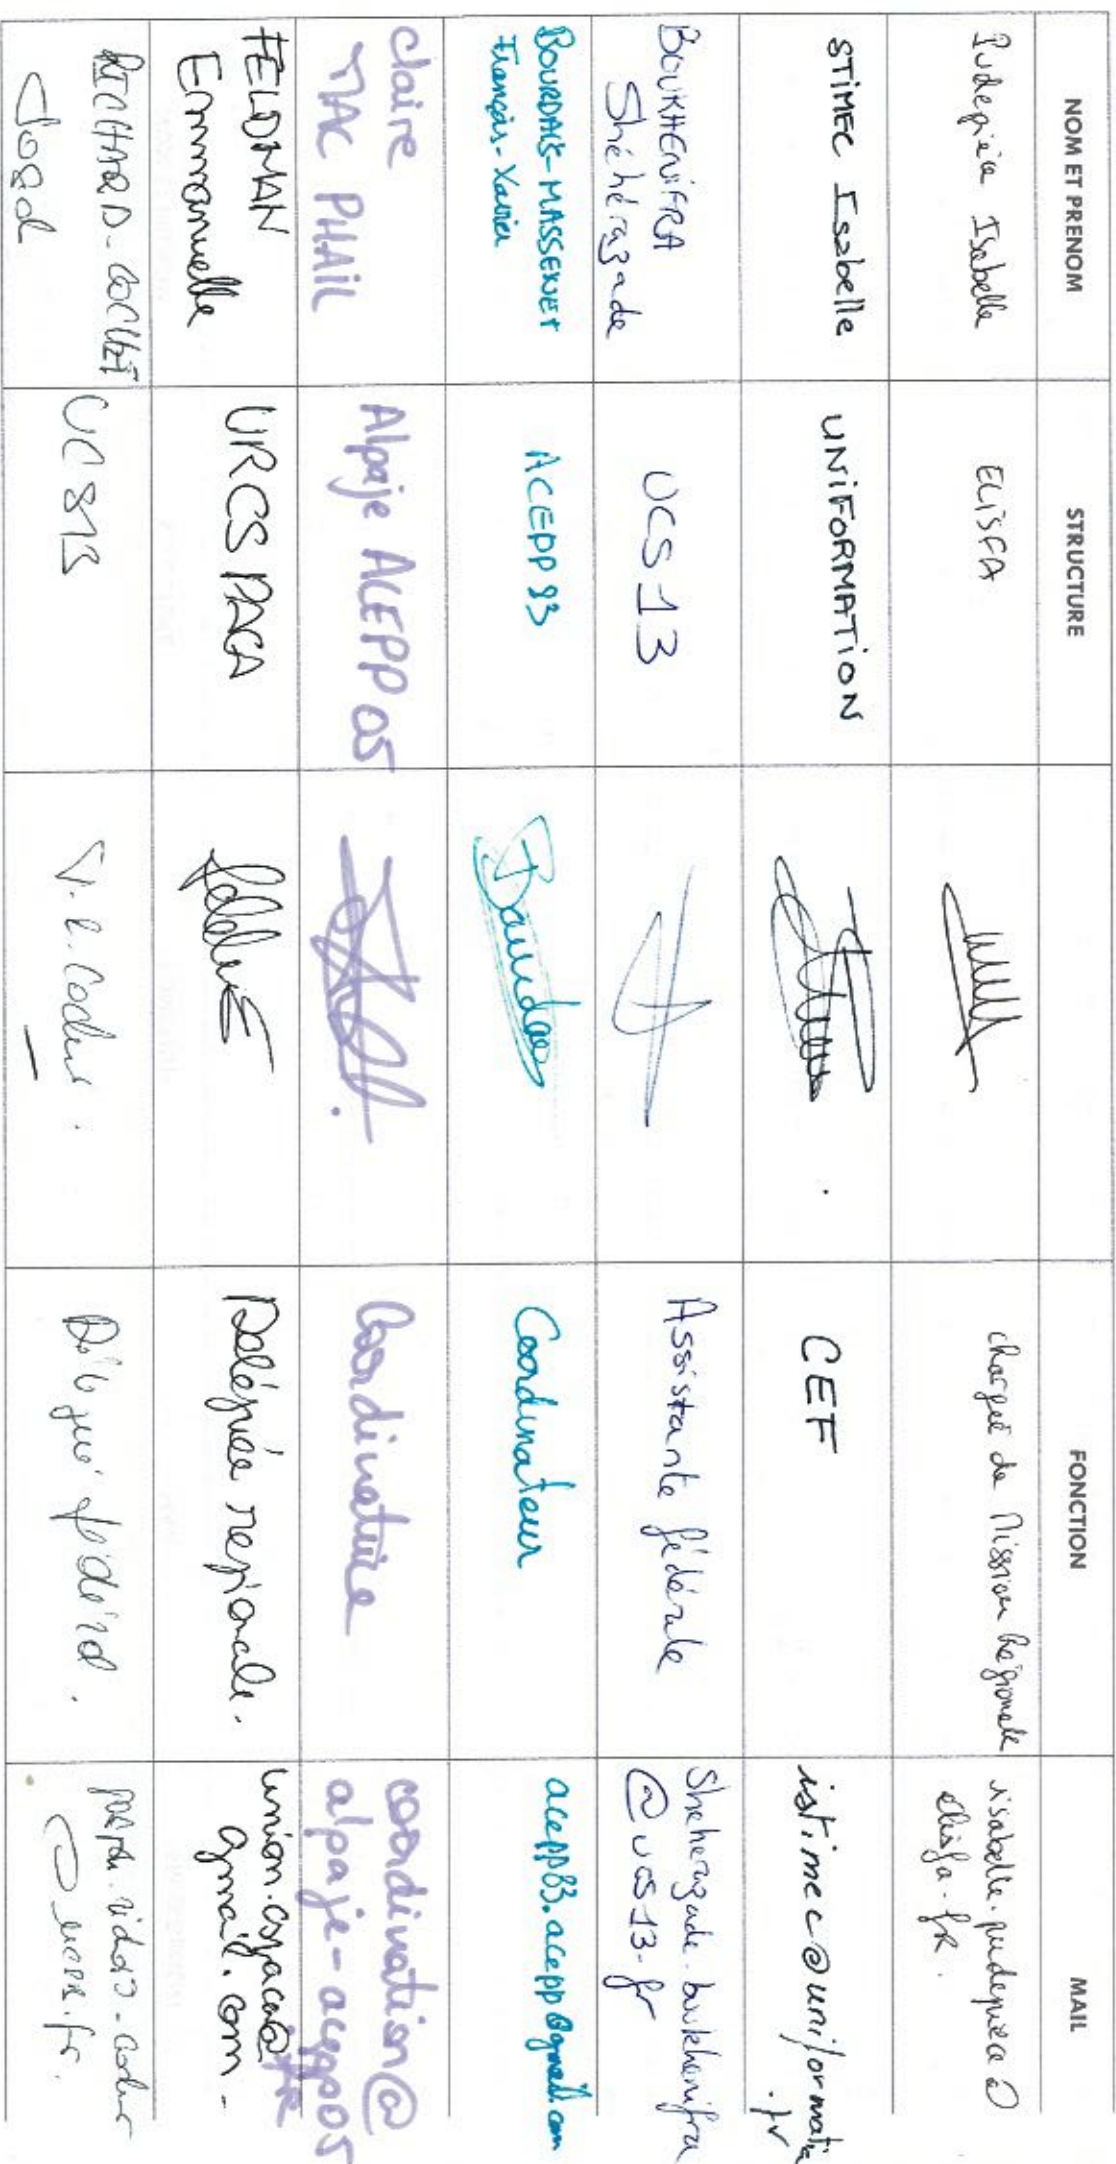 NOM ET PRENOM
STRUCTURE
FONCTION
MAIL
Pudepièce Isabelle
ELISFA
chargée de Mission Régionale
isabelle.pudepiece@
elisfa.fr.
STIMEC Isabelle
UNIFORMATION
CEF
istimec@uniformation
.fr
BOUKHENIFRA
Shéhérazade
UCS 13
Assistante fédérale
Sheherazade.boukhenifra
@ucs13.fr
BOURDAIS-MASSENET
François-Xavier
ACEPP 83
Coordinateur
acepp83.acepp@gmail.com
Claire
MAC PHAIL
Alpaje ACEPP 05
Coordinatrice
coordination@
alpaje-acepp05
.fr
FELDMAN
Emmanuelle
URCS PACA
Déléguée régionale.
gmail.com
RICHARD-COCHET
UCS13
Délégué fédéral.